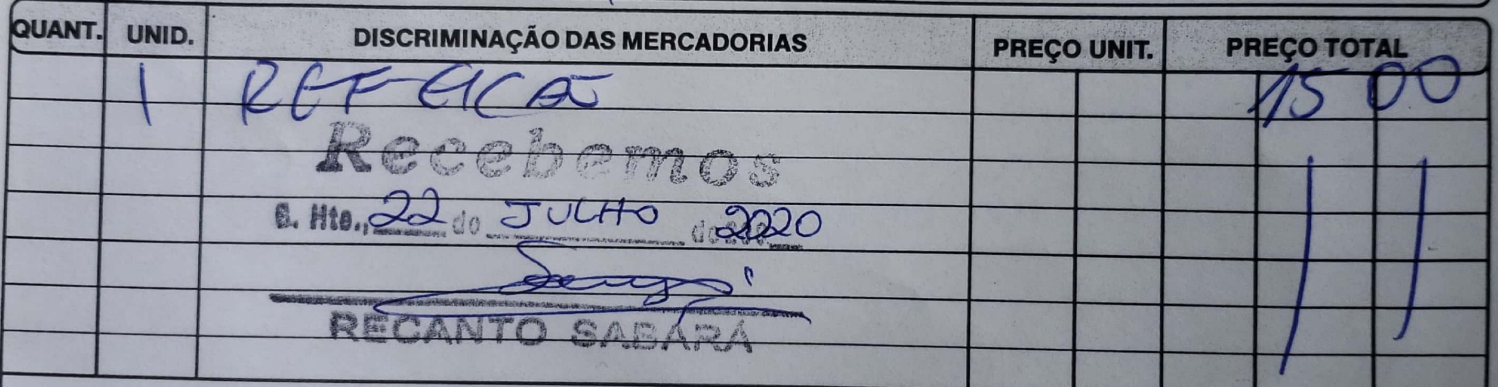 QUANT. UNID. DISCRIMINAÇÃO DAS MERCADORIAS PREÇO UNIT. PREÇO TOTAL
1 REFEICAO 15 00
Recebemos
B. Hte., 22 de JULHO de 2020
RECANTO SABARÁ